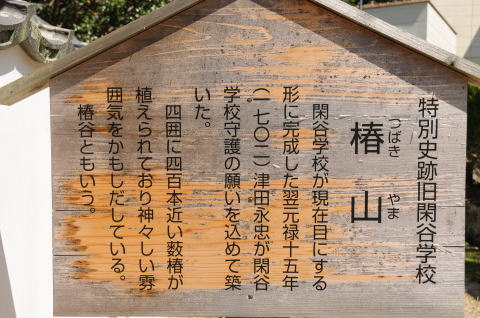 特別史跡旧閑谷学校
椿山
つばき
やま
閑谷学校が現在目にする
形に完成した翌元禄十五年
(一七〇二)津田永忠が閑谷
学校守護の願いを込めて築
いた。
四囲に四百本近い薮椿が
植えられており神々しい雰
囲気をかもしだしている。
椿谷ともいう。